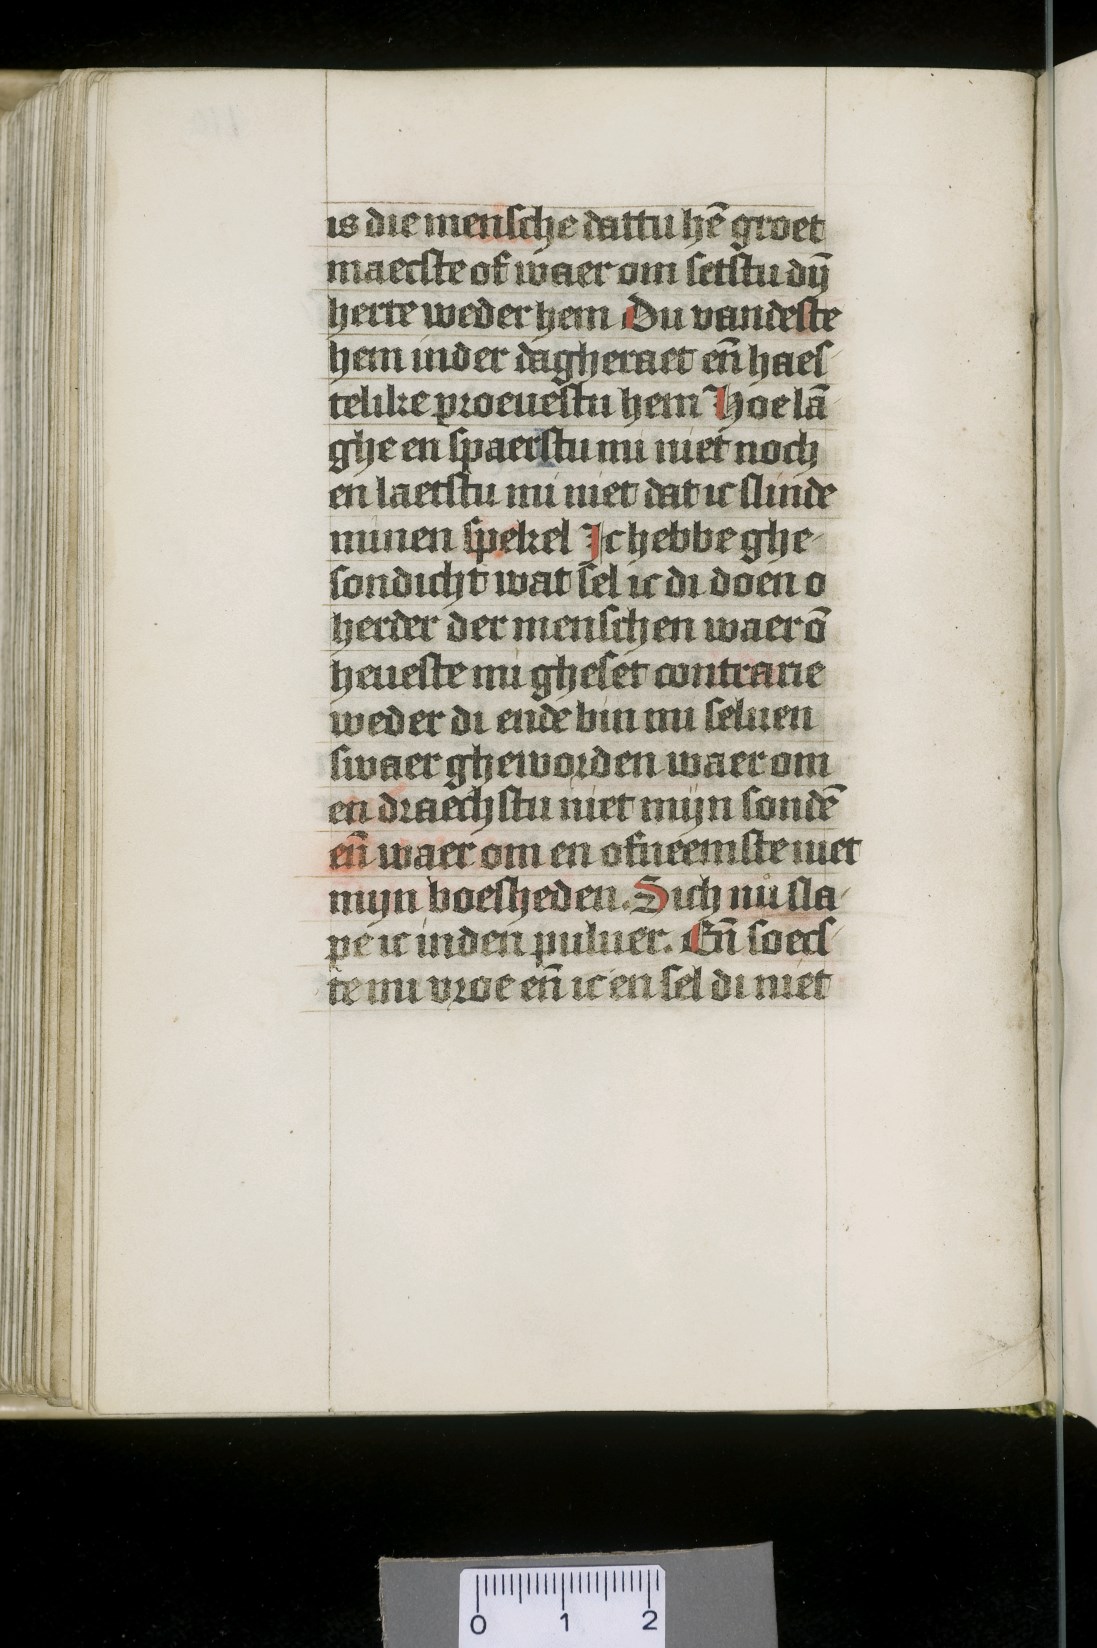 is die mensche dattu hē groet
maecste of waer om setstu dij̄
herte weder hem Du vandeste
hem inder dagheraet eñ haes-
telike proeuestu hem Hoe lā-
ghe en spaerstu mi niet noch
en laetstu mi niet dat ic slinde
minen spekel Ic hebbe ghe-
sondicht wat sel ic di doen o
herder der menschen waer ō
heueste mi gheset contrarie
weder di ende bin mi seluen
swaer gheworden waer om
en draechstu niet mijn sondē
eñ waer om en ofneemste niet
mijn boesheden. Sich nu sla-
pe ic inden puluer. Eñ soecs-
te mi vroe eñ ic en sel di niet
0 1 2